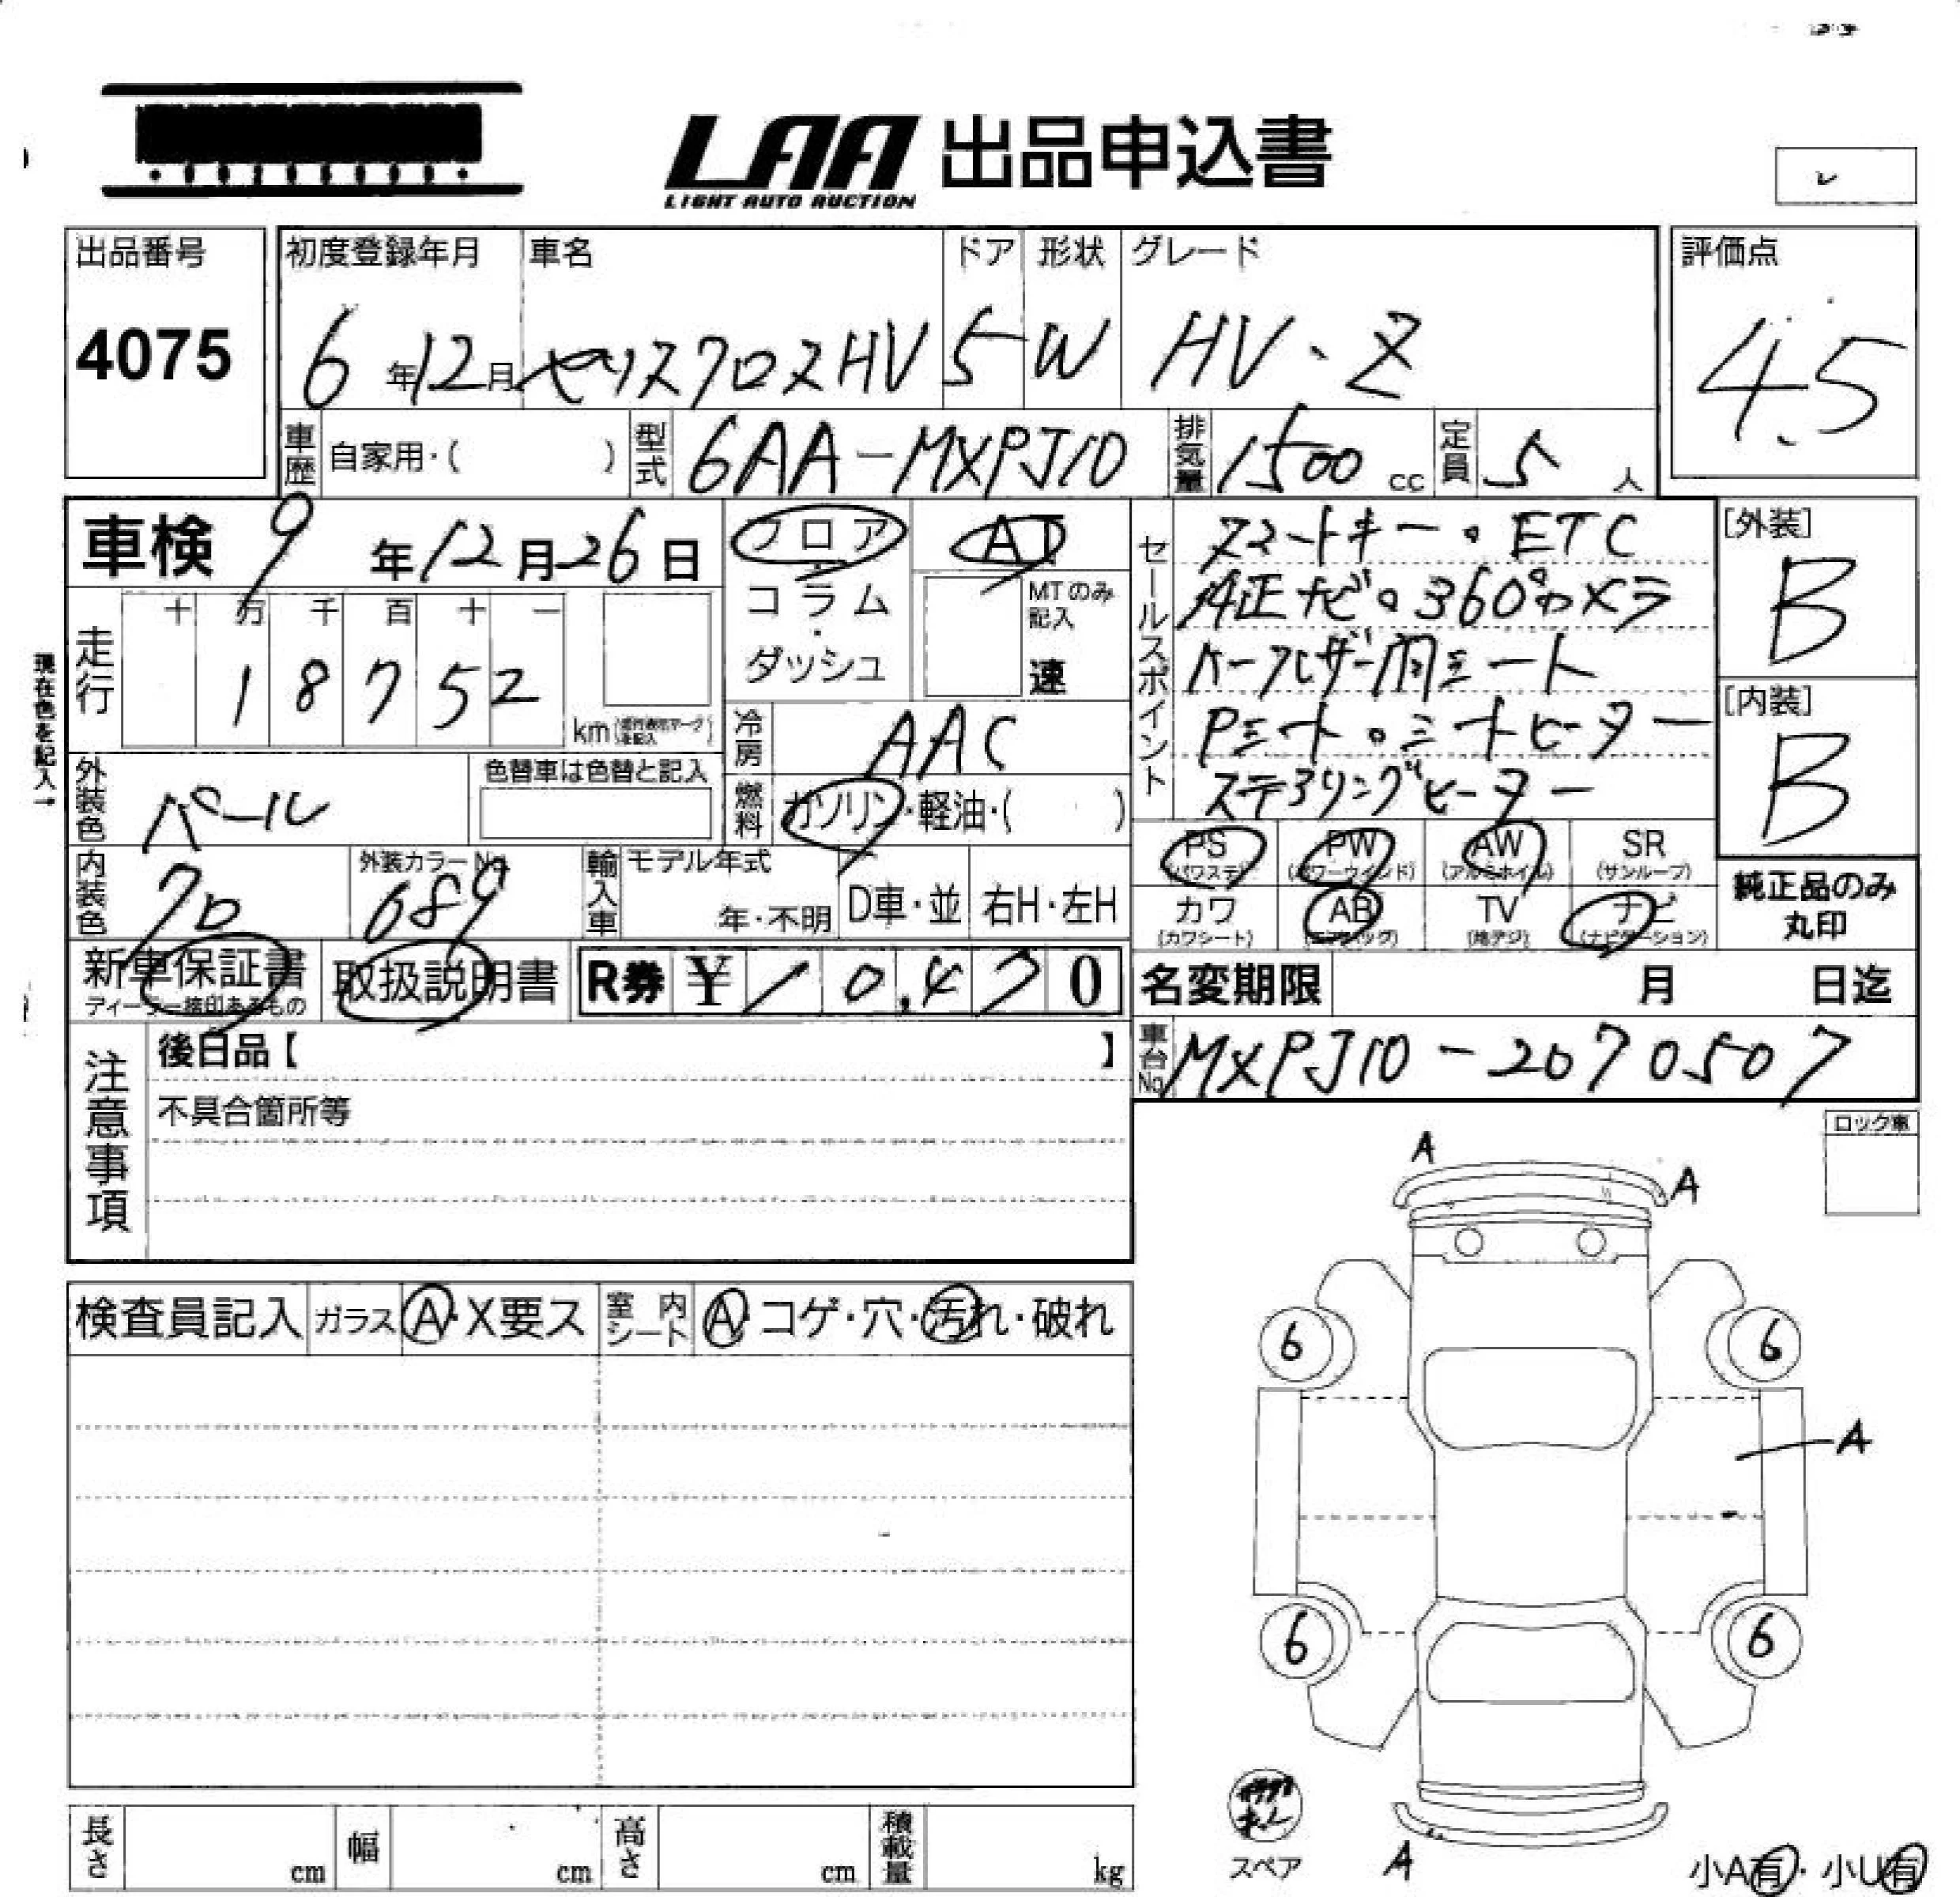 LAA 出品申込書
LIGHT AUTO AUCTION
出品番号
4075
初度登録年月 車名 ドア 形状 グレード
6年12月 ヤリスクロスHV 5 W HV・Z
評価点
4.5
車歴 自家用・( ) 型式 6AA-MXPJ10 排気量 1500 cc 定員 5 人
車検 9年12月26日
フロア・コラム・ダッシュ
AT
MTのみ記入
速
走行 十 万 千 百 十 一
1 8 7 5 2
km
現在色を記入→
冷房 AAC
外装色 パール
色替車は色替と記入
燃料 ガソリン・軽油・( )
内装色 クロ
外装カラーNo. 689
輸入車 モデル年式
年・不明 D車・並 右H・左H
新車保証書
ディーラー捺印あるもの
取扱説明書
R券 ¥10,470
セールスポイント
スマートキー・ETC
純正ナビ・360°カメラ
ハーフレザー調シート
Pシート・シートヒーター
ステアリングヒーター
[外装]
B
[内装]
B
PS PW AW SR
(パワステ) (パワーウインド) (アルミホイル) (サンルーフ)
カワ AB TV ナビ
(カワシート) (エアバッグ) (地デジ) (ナビゲーション)
純正品のみ
丸印
名変期限 月 日迄
車台No. MXPJ10-2070507
注意事項
後日品【 】
不具合箇所等
ロック車
検査員記入 ガラス A・X要ス 室内シート A・コゲ・穴・汚れ・破れ
A
A
6 6
A
6 6
スペア
A
小A有・小U有
長さ cm 幅 cm 高さ cm 積載量 kg